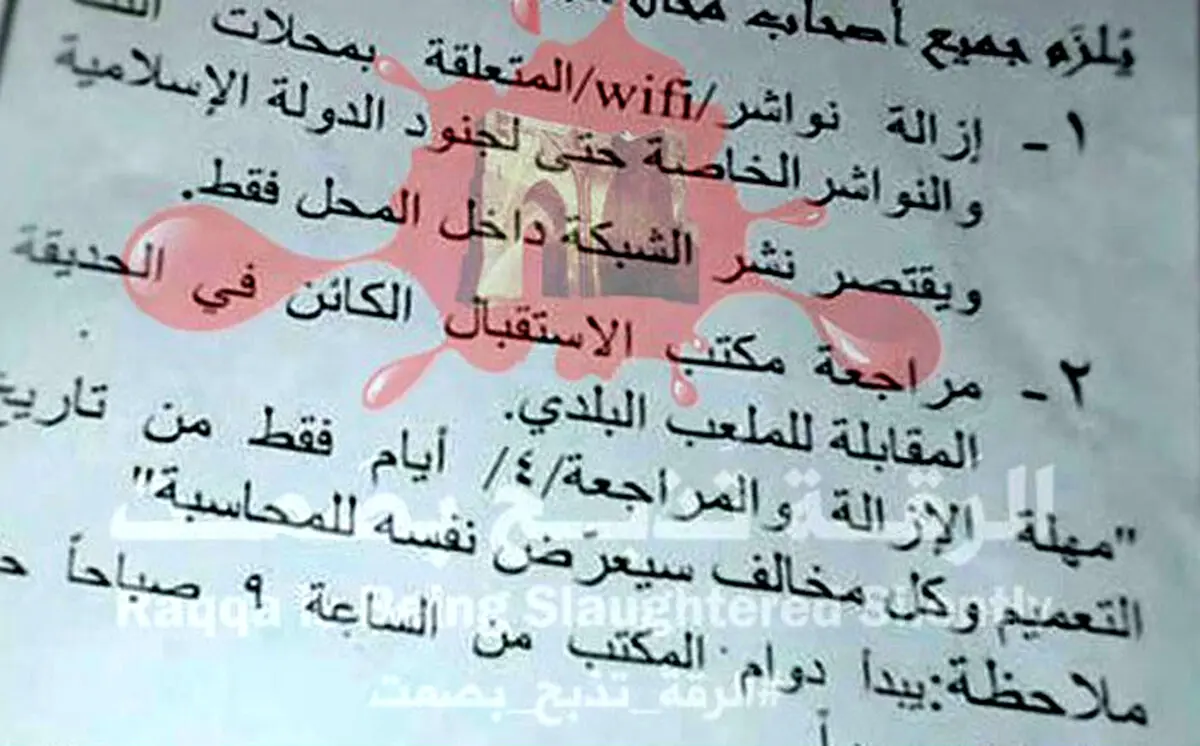 يُلزَم جميع أصحاب محال
١- إزالة نواشر/wifi/المتعلقة بمحلات
والنواشر الخاصة حتى لجنود الدولة الإسلامية
ويقتصر نشر الشبكة داخل المحل فقط.
٢- مراجعة مكتب الاستقبال الكائن في الحديقة
المقابلة للملعب البلدي.
"مهلة الإزالة والمراجعة/٤/ أيام فقط من تاريخ
التعميم وكل مخالف سيعرّض نفسه للمحاسبة"
ملاحظة:يبدأ دوام المكتب من الساعة ٩ صباحاً
الرقة تذبح بصمت
Raqqa is Being Slaughtered Silently
#الرقة_تذبح_بصمت